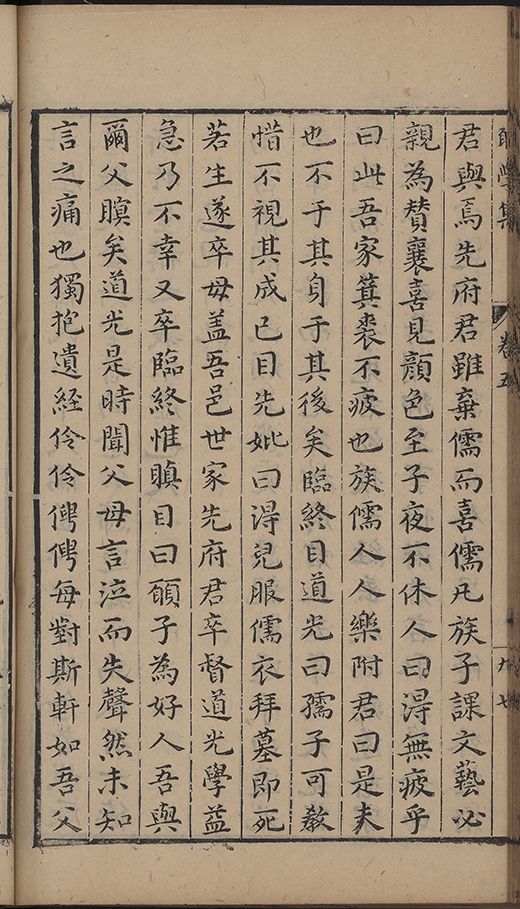 學集 卷五
君與焉先府君雖棄儒而喜儒凡族子課文藝必
親為賛襄喜見顏色至子夜不休人曰淂無疲乎
曰此吾家箕裘不疲也族儒人人樂附君曰是夫
也不于其身于其後矣臨終目道光曰孺子可教
惜不視其成已目先妣曰淂兒服儒衣拜墓即死
若生遂卒母盖吾邑世家先府君卒督道光學益
急乃不幸又卒臨終惟瞋目曰願子為好人吾與
爾父瞑矣道光是時聞父母言泣而失聲然未知
言之痛也獨抱遺經伶伶俜俜每對斯軒如吾父